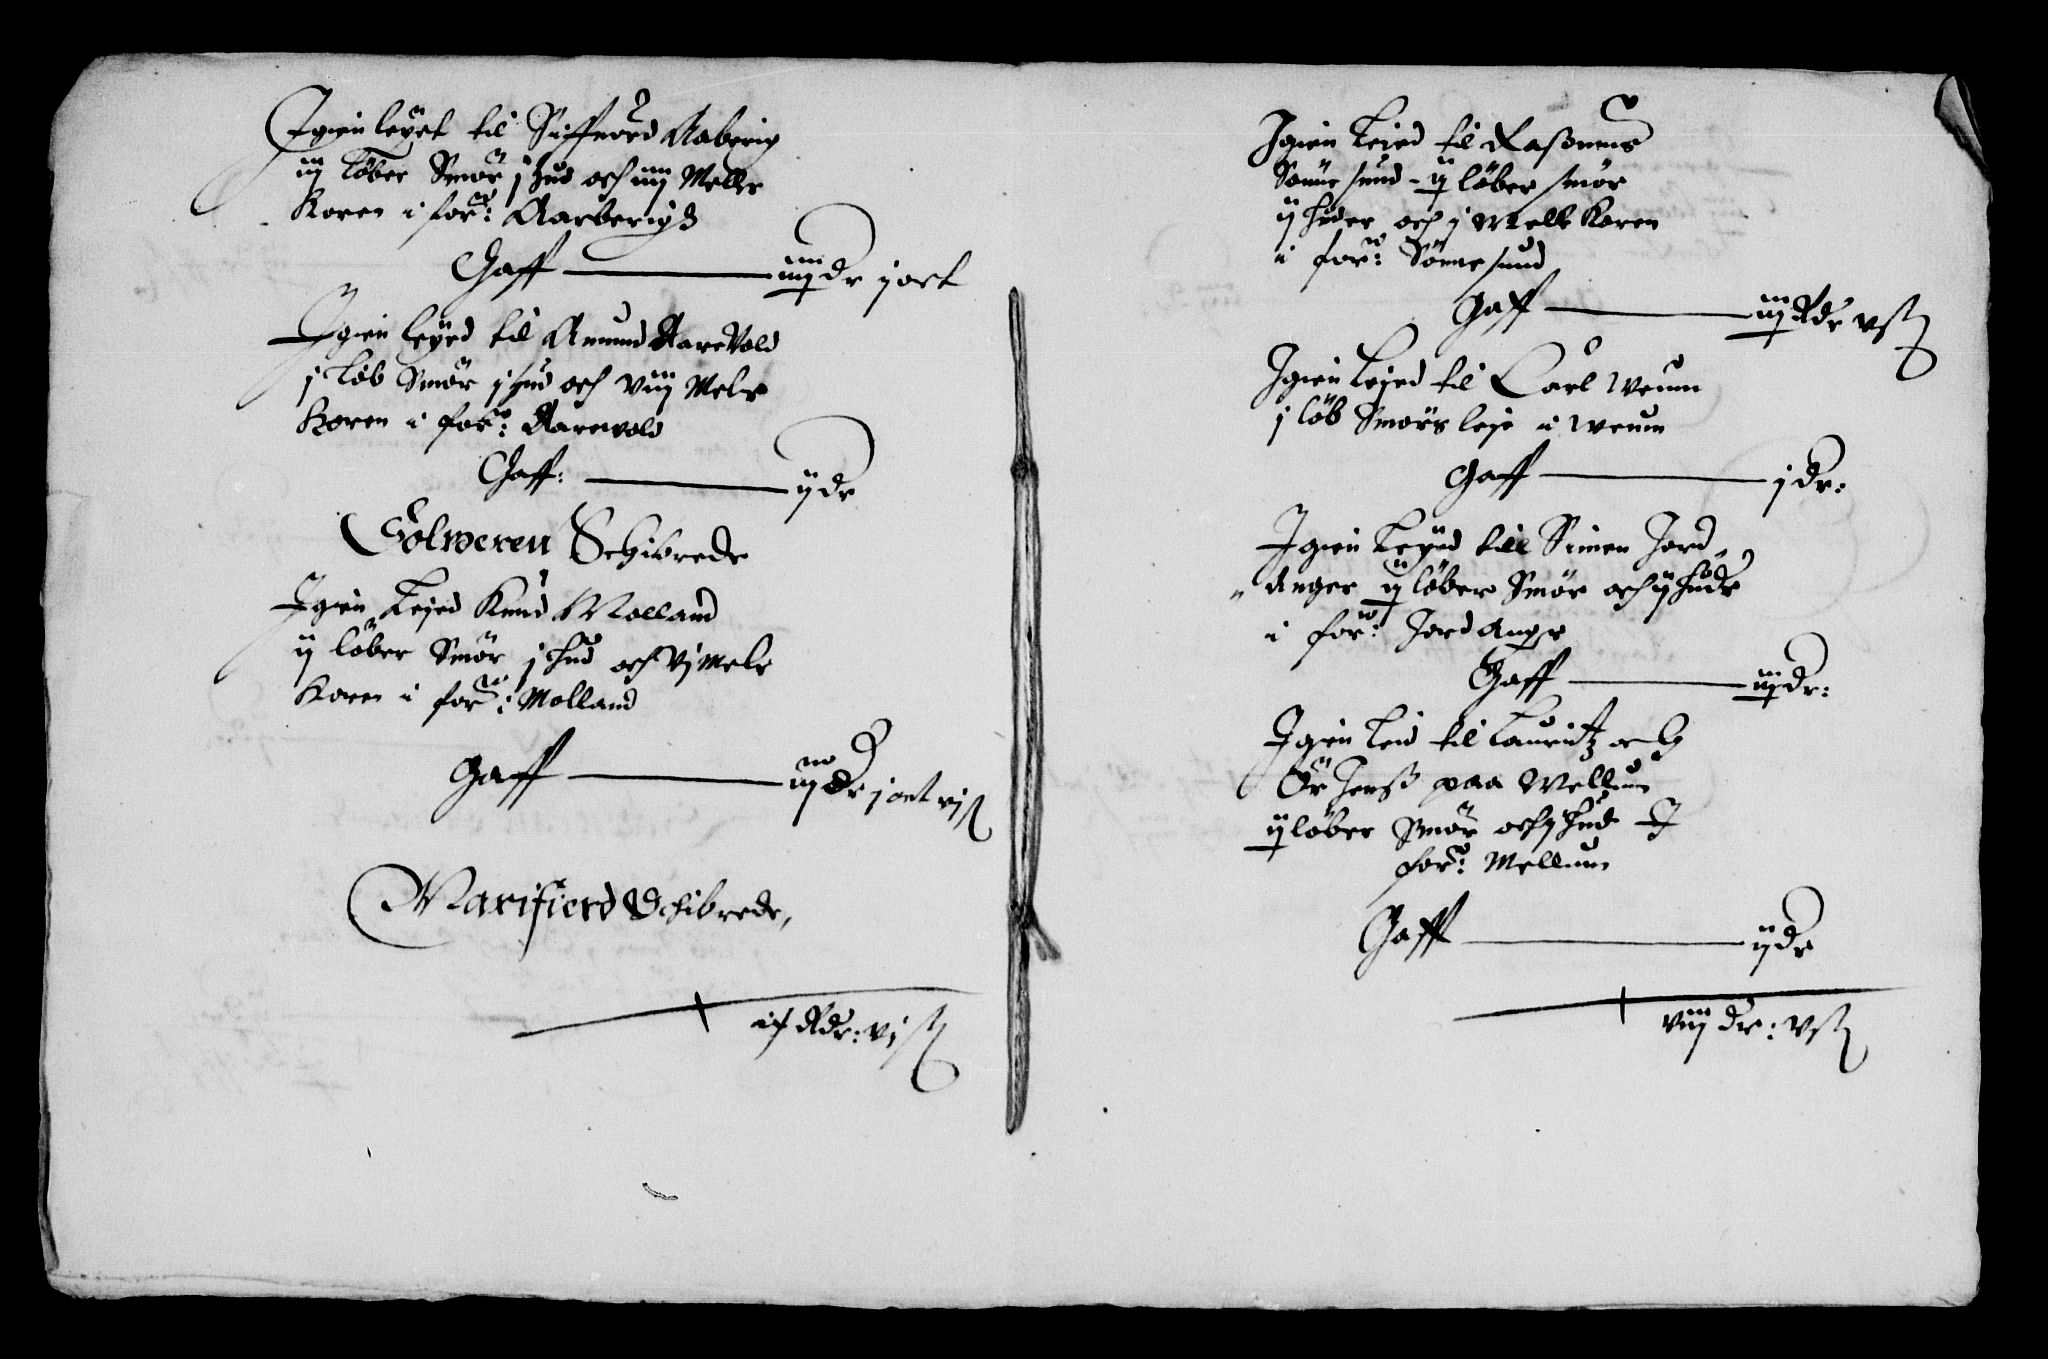 Igien leyet til Siffuord Aaberig
iij löber Smör j hud och iiij Meller
Koren i for: Aarberigs
Gaff iiij dr j ort
Igien leyed til Amund AareVold
j löb Smör j hud och viij Meler
Koren i for: Aarevold
Gaff: ij dr
Solweren Schibrede
Igien Leied Knud Molland
ij löber Smör j hud och vj meler
Koren i for: Molland
Gaff iij dr j ort vj ß
Marifierd Schibrede,
ix Rdr: vj ß
Igien Leied til Rasmus
Sönnesund ij löber smör
ij huder och j Mell Koren
i for: Sönnesund
Gaff iij Rdr v ß
Igien Leied til Carl Weum
j löb Smörs leje i Weum
Gaff j dr:
Igien Leyed till Simen Jord
Anger ij löber Smör och ij huder
i for: Jordanger
Gaff iij dr:
Igien leid til Lauritz och
Jenß paa Mellum
ij löber Smör och j hud I
for: Mellum
Gaff ij dr
viij dr: v ß